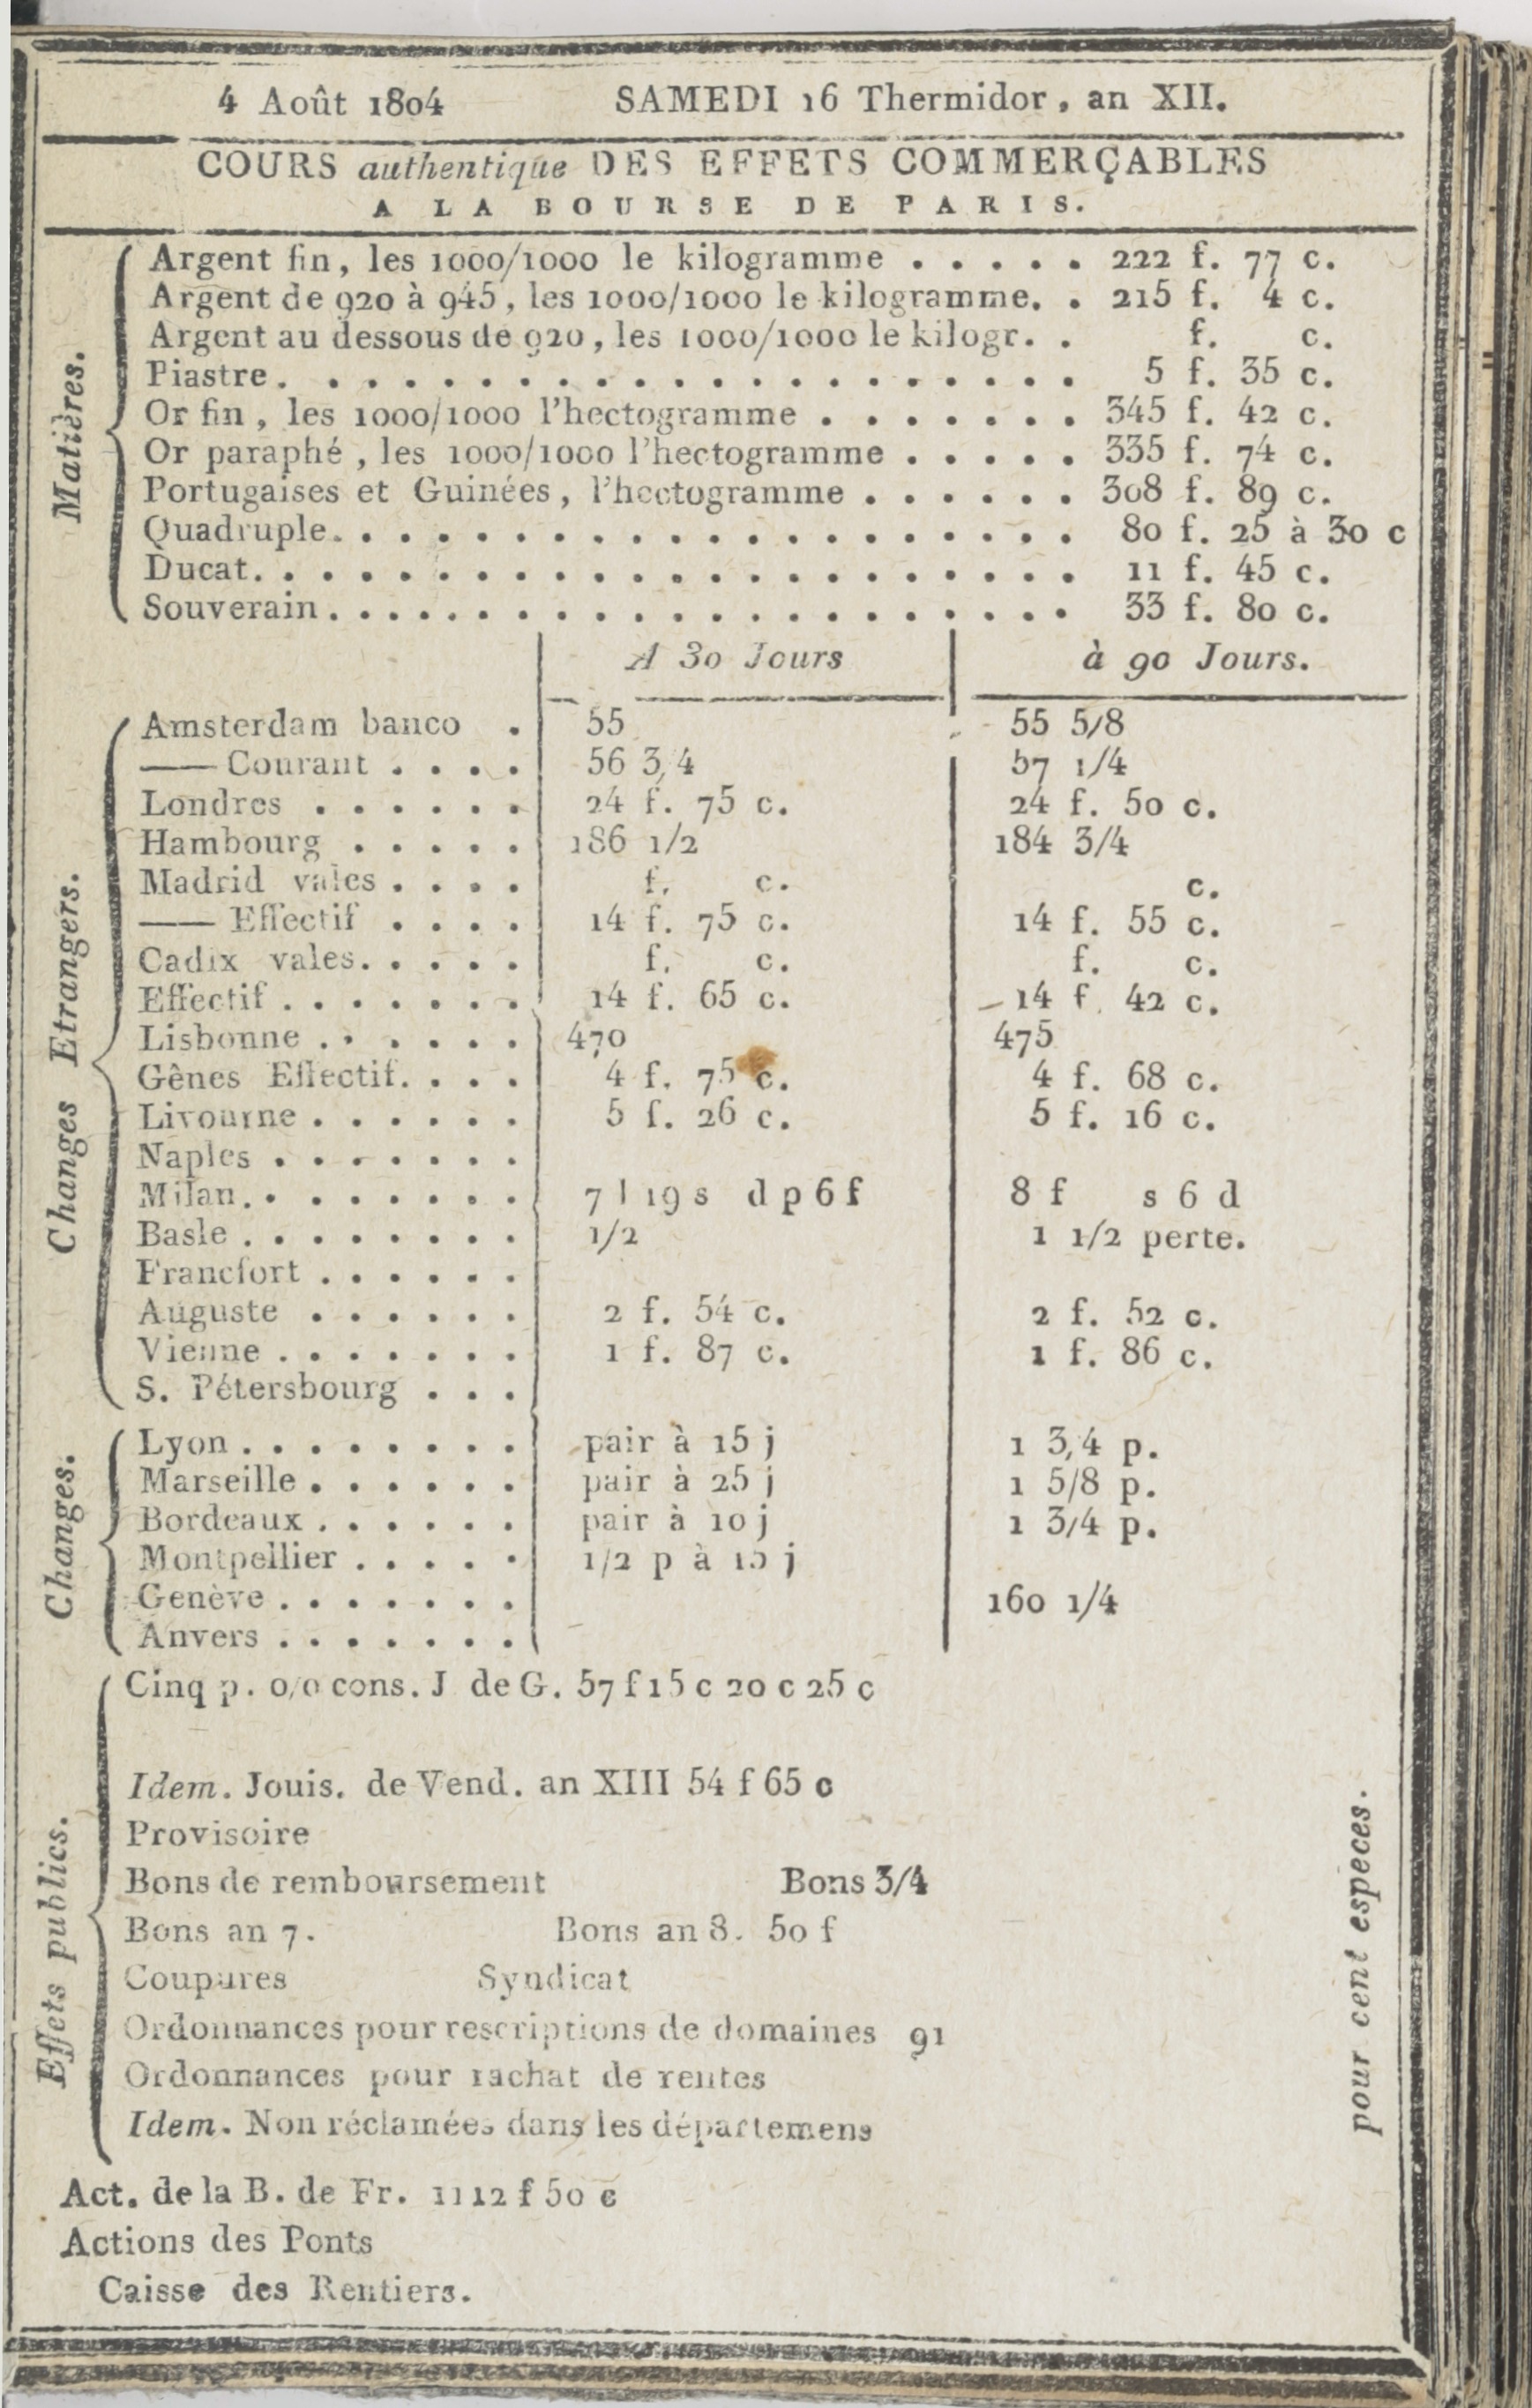 4 Août 1804 SAMEDI 16 Thermidor, an XII.
COURS authentique DES EFFETS COMMERÇABLES
A LA BOURSE DE PARIS.
Matières.
Argent fin, les 1000/1000 le kilogramme . . . . . 222 f. 77 c.
Argent de 920 à 945, les 1000/1000 le kilogramme. . 215 f. 4 c.
Argent au dessous de 920, les 1000/1000 le kilogr. . f. c.
Piastre. . . . . . . . . . . . . . . . . . . . . 5 f. 35 c.
Or fin, les 1000/1000 l'hectogramme . . . . . . . 345 f. 42 c.
Or paraphé, les 1000/1000 l'hectogramme . . . . . 335 f. 74 c.
Portugaises et Guinées, l'hectogramme . . . . . . 308 f. 89 c.
Quadruple. . . . . . . . . . . . . . . . . . . . 80 f. 25 à 30 c
Ducat. . . . . . . . . . . . . . . . . . . . . . 11 f. 45 c.
Souverain . . . . . . . . . . . . . . . . . . . . 33 f. 80 c.
A 30 Jours à 90 Jours.
Changes Etrangers.
Amsterdam banco . 55 55 5/8
—— Courant . . . . 56 3/4 57 1/4
Londres . . . . . . 24 f. 75 c. 24 f. 50 c.
Hambourg . . . . . 186 1/2 184 3/4
Madrid vales . . . . f. c. c.
—— Effectif . . . . 14 f. 75 c. 14 f. 55 c.
Cadix vales. . . . . f. c. f. c.
Effectif . . . . . . . 14 f. 65 c. 14 f. 42 c.
Lisbonne . . . . . . 470 475
Gênes Effectif. . . . 4 f. 75 c. 4 f. 68 c.
Livourne . . . . . . 5 f. 26 c. 5 f. 16 c.
Naples . . . . . . .
Milan. . . . . . . . 7 l 19 s d p 6 f 8 f s 6 d
Basle . . . . . . . . 1/2 1 1/2 perte.
Francfort . . . . . .
Auguste . . . . . . 2 f. 54 c. 2 f. 52 c.
Vienne . . . . . . . 1 f. 87 c. 1 f. 86 c.
S. Pétersbourg . . .
Changes.
Lyon . . . . . . . . pair à 15 j 1 3/4 p.
Marseille . . . . . . pair à 25 j 1 5/8 p.
Bordeaux . . . . . . pair à 10 j 1 3/4 p.
Montpellier . . . . . 1/2 p à 15 j
Genève . . . . . . . 160 1/4
Anvers . . . . . . .
Effets publics.
Cinq p. 0/0 cons. J de G. 57 f 15 c 20 c 25 c
Idem. Jouis. de Vend. an XIII 54 f 65 c
Provisoire
Bons de remboursement Bons 3/4
Bons an 7. Bons an 8. 50 f
Coupures Syndicat
Ordonnances pour rescriptions de domaines 91
Ordonnances pour rachat de rentes
Idem. Non réclamées dans les départemens
pour cent especes.
Act. de la B. de Fr. 1112 f 50 c
Actions des Ponts
Caisse des Rentiers.